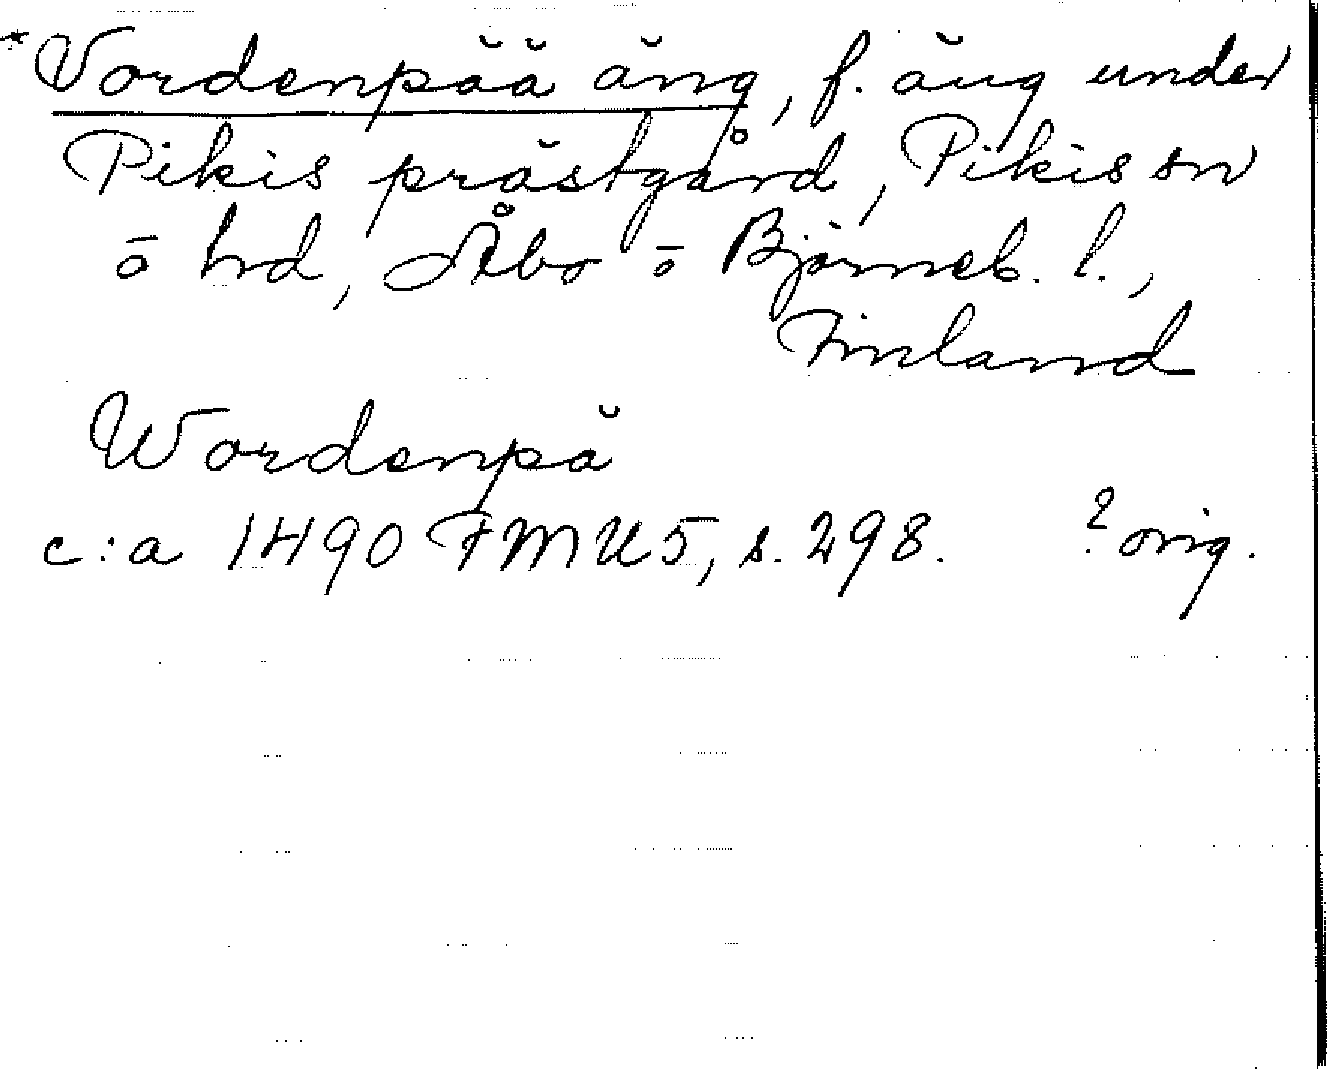 *Vordenpää äng, f. äng under
Pikis prästgård, Pikis sn
o hd, Åbo o Björneb. l.,
Finland
Wordenpä
c:a 1490 FMU 5, s. 298. ? orig.